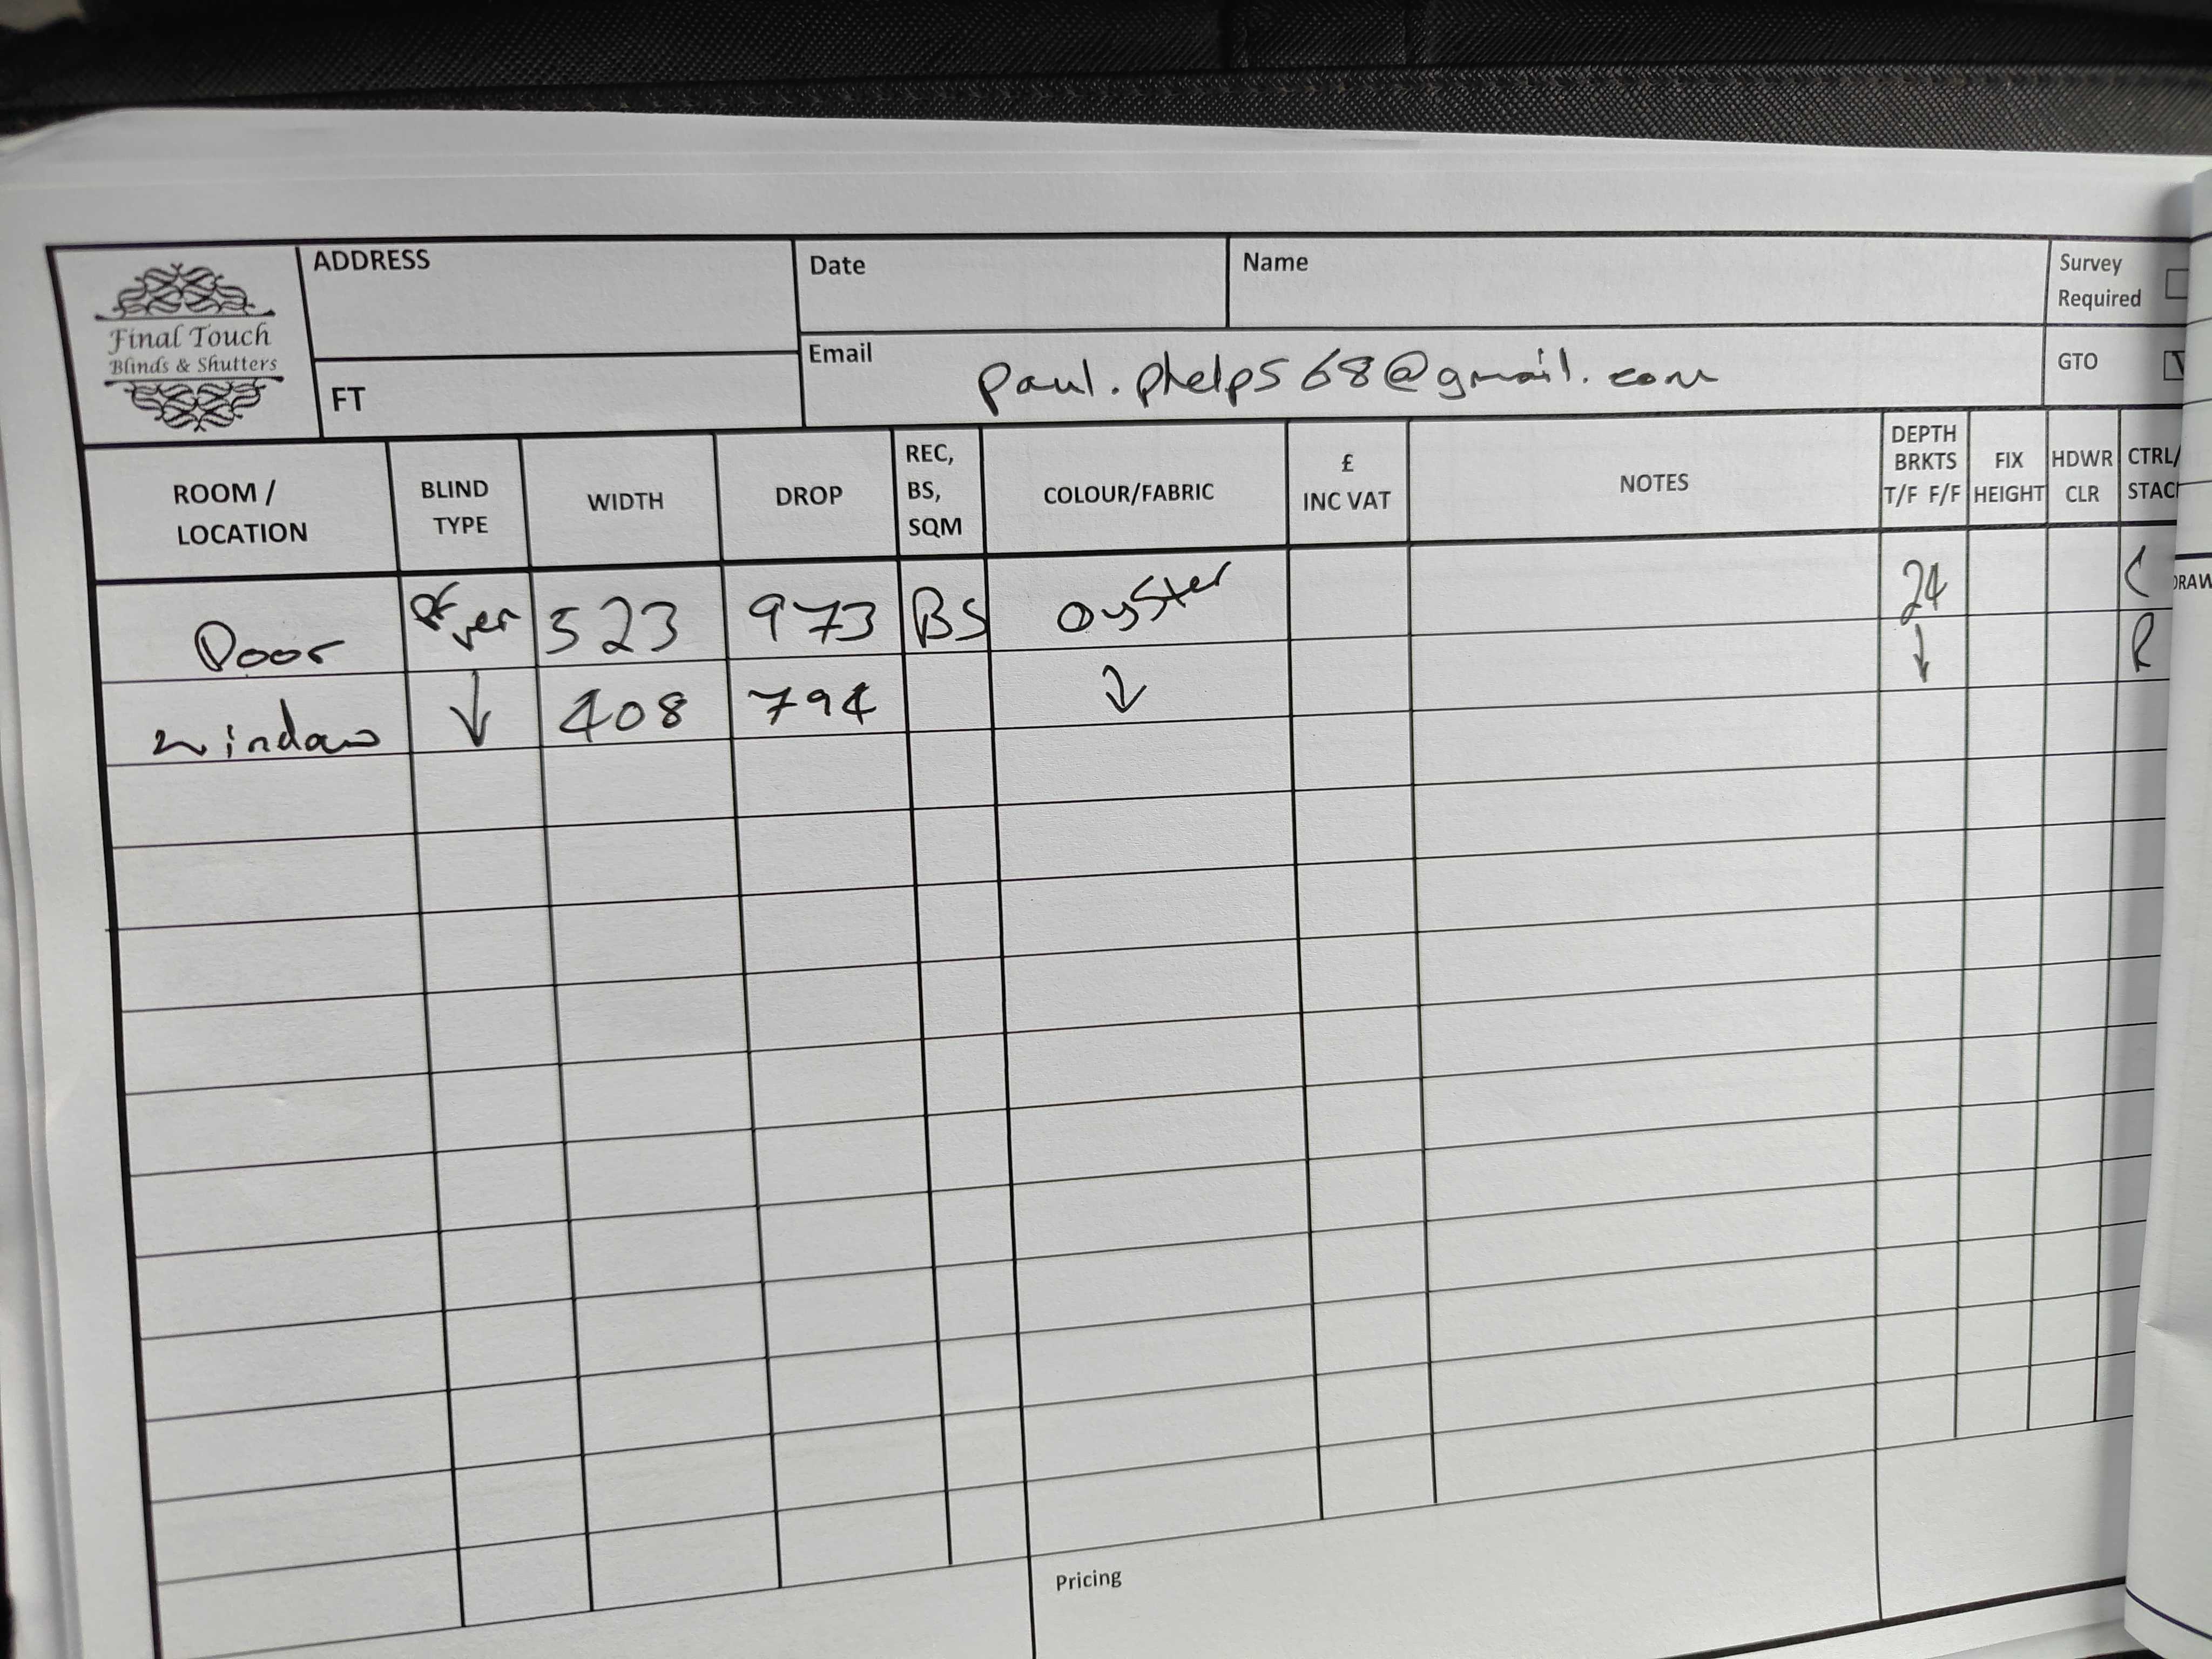 Final Touch
Blinds & Shutters
ADDRESS
FT
Date
Name
Survey
Required
Email
paul.phelps68@gmail.com
GTO
ROOM /
LOCATION
BLIND
TYPE
WIDTH
DROP
REC,
BS,
SQM
COLOUR/FABRIC
£
INC VAT
NOTES
DEPTH
BRKTS
T/F F/F
FIX
HEIGHT
HDWR
CLR
CTRL/
STAC
DRAW
Door 523 973 BS oyster 24
window ↓ 408 794 ↓ ↓ R
Pricing